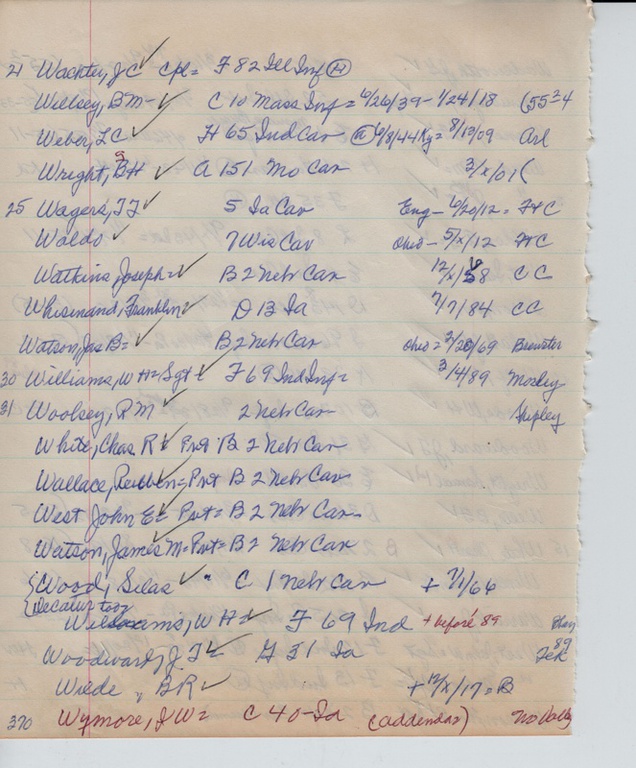 21 Wachter, JC ✓ Cpl = F 82 Ill Inf (H)
Willsey, BM - ✓ C 10 Mass Inf = 6/26/39 - 1/24/18 (55-24
Weber, LC ✓ H 65 Ind Cav @ 6/8/44 Ky = 8/12/09 Arl
Wright, BH ✓ A 151 Mo Cav 3/x/01 (
25 Wagers, TJ ✓ 5 Ia Cav Eng - 6/20/12 = F+C
Waldo ✓ 7 Wis Cav Ohio - 5/x/12 F+C
Watkins, Joseph = ✓ B 2 Nebr Cav 12/x/88 CC
Whisenand, Franklin ✓ D 13 Ia 7/7/84 CC
Watson, Jas B = ✓ B 2 Nebr Cav Ohio = 2/20/69 Brewster
30 Williams, WH = Sgt ✓ F 69 Ind Inf = 3/4/89 Mosley
31 Woolsey, RM ✓ 2 Nebr Cav Shipley
White, Chas R ✓ Pvt B 2 Nebr Cav
Wallace, Reuben = Pvt B 2 Nebr Cav
West John E = Pvt = B 2 Nebr Cav
Watson, James M = Pvt = B 2 Nebr Cav
{Wood, Silas ✓ " C 1 Nebr Cav + 7/1/64
{Decatur too?
Williams, WH = ✓ F 69 Ind + before 89
Woodward, J T = ✓ G 51 Ia 89 Tek
Wilde, BR ✓ + 12/x/17 = B
370 Wymore, JW = C 40 - Ia (addendas) Mo Valley